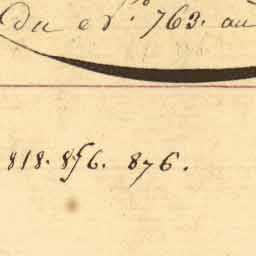 Du  No. 763. au
818. 856. 876.